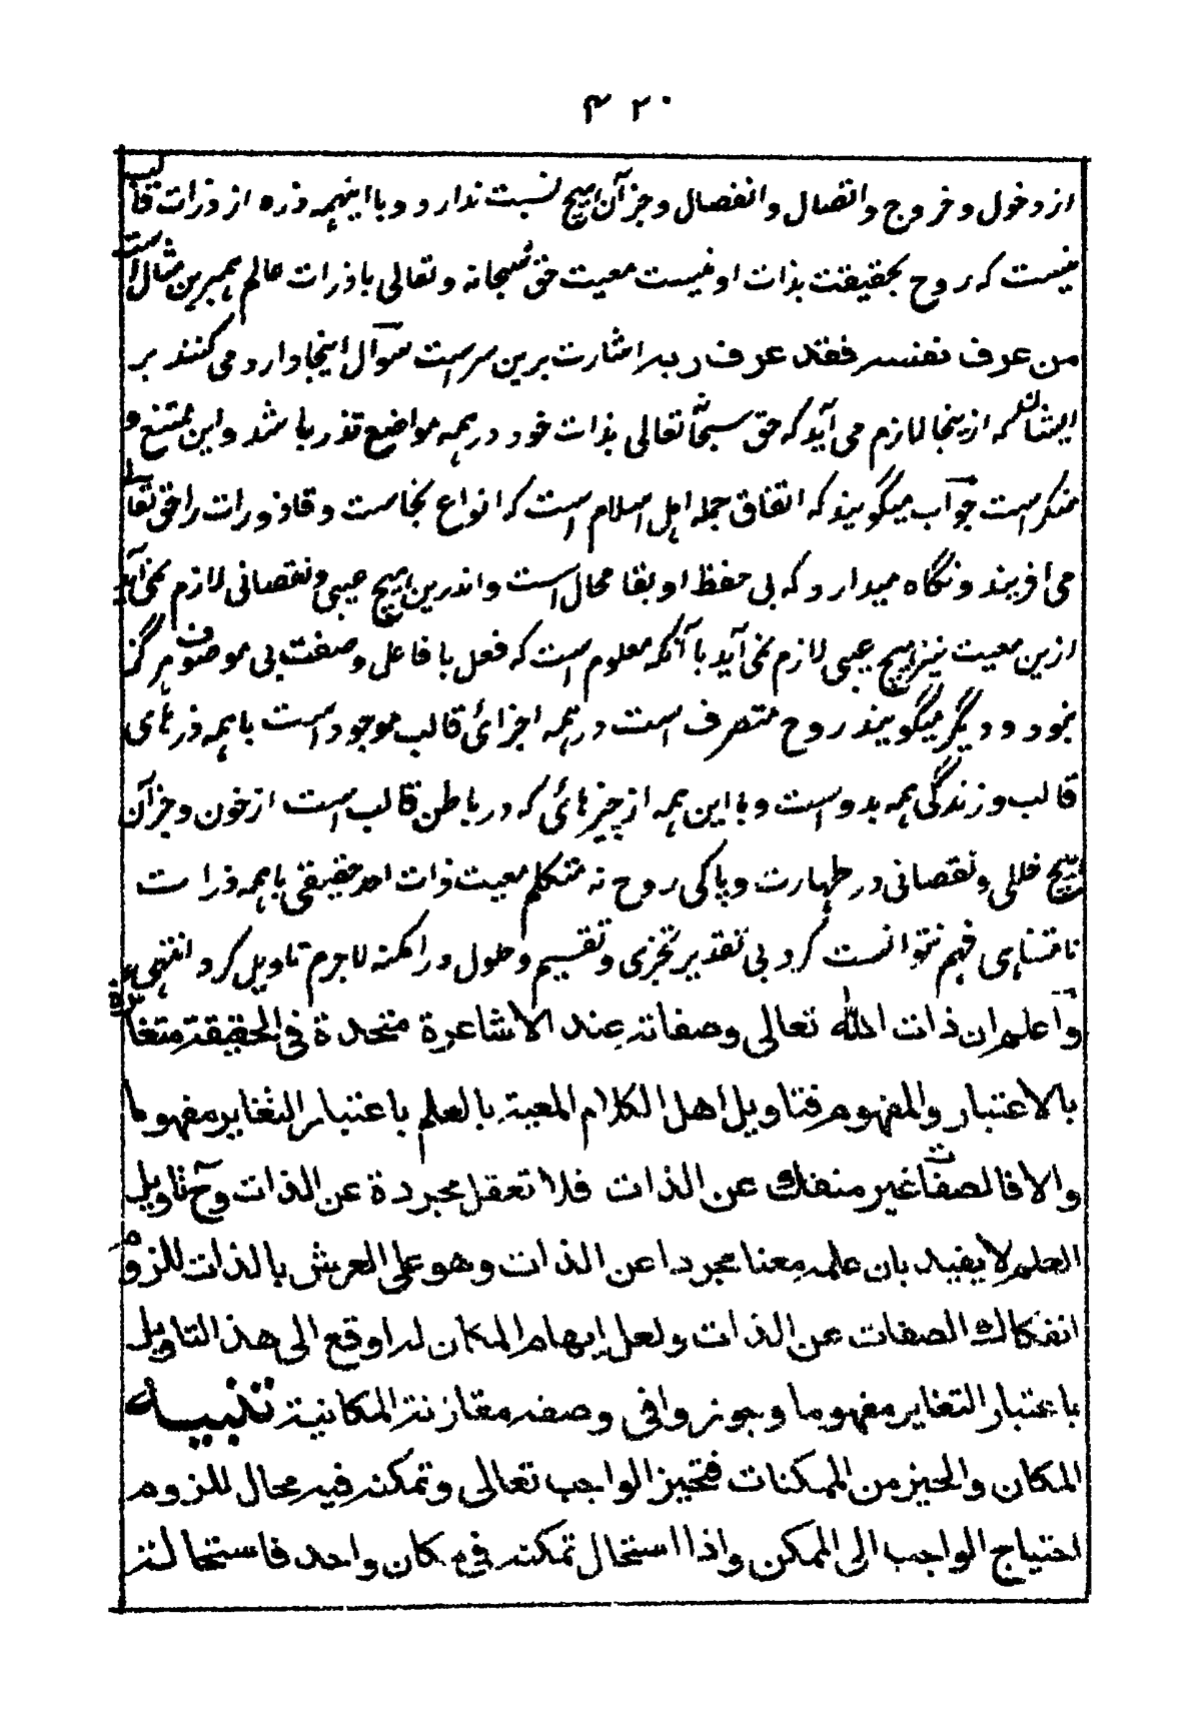 ۴۲۰
از دخول و خروج و اتصال و انفصال و جز آن هیچ نسبت ندارد و با اینهمه ذره از ذرات قالب
نیست که روح بحقیقت بذات او نیست معیت حق سبحانه و تعالی با ذرات عالم همبرین مثال است
من عرف نفسه فقد عرف ربه اشارت برین سر است سوال اینجا وارد می کنند بر
ایشان که ازینجا لازم می آید که حق سبحانه تعالی بذات خود در همه مواضع قذر باشد و این ممتنع و
منکر است جواب میگویند که اتفاق جمله اهل اسلام است که انواع نجاست و قاذورات را حق تعالی
می آفریند و نگاه میدارد که بی حفظ او بقا محال است و اندرین هیچ عیبی و نقصانی لازم نمی آید
ازین معیت نیز هیچ عیبی لازم نمی آید با آنکه معلوم است که فعل با فاعل و صفت بی موصوف هرگز
نبود و دیگر میگویند روح متصرف است در همه اجزائی قالب موجود است با همه ذرهای
قالب و زندگی همه بدو است و با این همه از چیزهائی که در باطن قالب است از خون و جز آن
هیچ خللی و نقصانی در طهارت و پاکی روح نه متکلم معیت ذات احد حقیقی با همه ذرات
نامتناهی فهم نتوانست کرد بی تقدیر تجزی و تقسیم و حلول در امکنه لاجرم تاویل کرد انتهی
واعلم ان ذات الله تعالی وصفاته عند الاشاعرة متحدة فی الحقیقة متغایرة
بالاعتبار والمفهوم فتاویل اهل الکلام المعیة بالعلم باعتبار التغایر مفهوما
والا فالصفات غیر منفك عن الذات فلا تعقل مجردة عن الذات وح تاویل
العلم لا یفید بان علمه معنا مجردا عن الذات وهو علی العرش بالذات للزوم
انفکاك الصفات عن الذات ولعل ایهام المکان لدا وقع الی هذا التاویل
باعتبار التغایر مفهوما وجوزوا فی وصفه مقارنته المکانیة تنبیه
المکان والحیز من الممکنات فتحیز الواجب تعالی وتمکنه فیه محال للزوم
احتیاج الواجب الی الممکن واذا استحال تمکنه فی مکان واحد فاستحالته